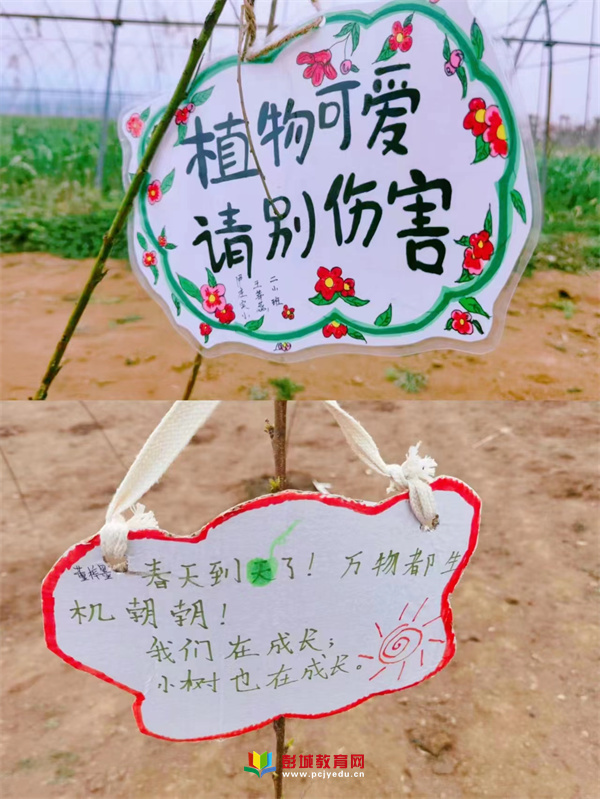 植物可爱
请别伤害
春天到了！万物都生
机朝朝！
我们在成长；
小树也在成长。
彭城教育网
www.pcjyedu.cn